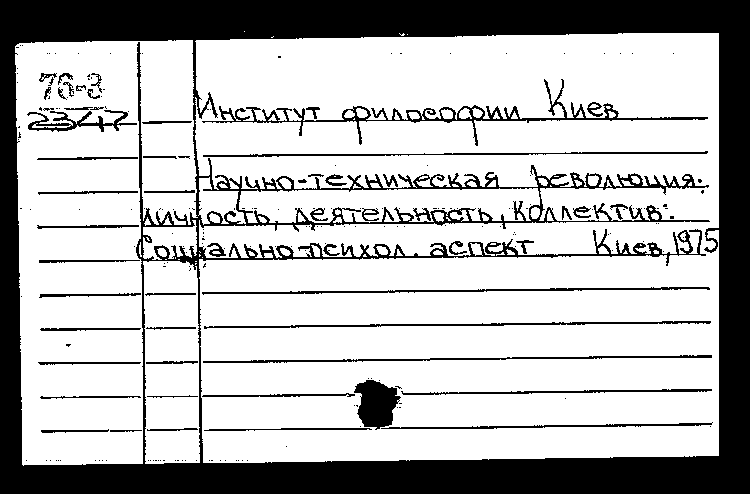 76-3
23/47
Институт философии. Киев
Научно-техническая революция:
личность, деятельность, коллектив:
Социально-психол. аспект Киев, 1975